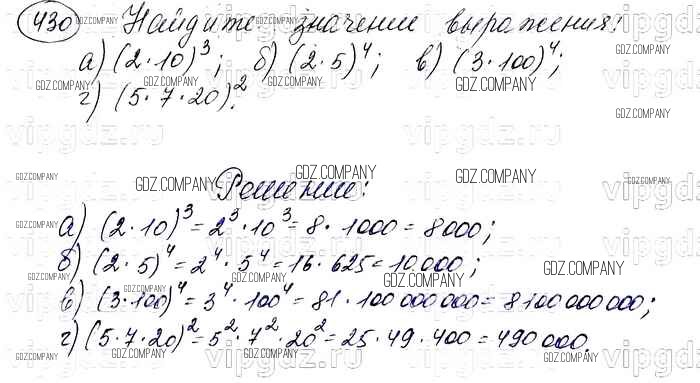 430 Найдите значение выражения:
а) (2·10)³; б) (2·5)⁴; в) (3·100)⁴;
г) (5·7·20)².
Решение:
а) (2·10)³ = 2³·10³ = 8·1000 = 8000;
б) (2·5)⁴ = 2⁴·5⁴ = 16·625 = 10.000;
в) (3·100)⁴ = 3⁴·100⁴ = 81·100 000 000 = 8100 000 000;
г) (5·7·20)² = 5²·7²·20² = 25·49·400 = 490 000.
GDZ.COMPANY
vipgdz.ru